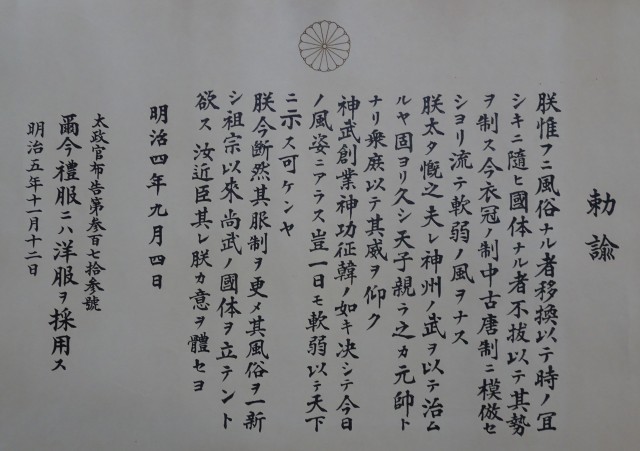 勅諭
朕惟フニ風俗ナル者移換以テ時ノ冝
シキニ隨ヒ国体ナル者不抜以テ其勢
ヲ制ス今衣冠ノ制中古唐制ニ模倣セ
シヨリ流テ軟弱ノ風ヲナス
朕太タ慨之夫レ神州ノ武ヲ以テ治ム
ルヤ固ヨリ久シ天子親ラ之カ元帥ト
ナリ衆庶以テ其威ヲ仰ク
神武創業神功征韓ノ如キ决シテ今日
ノ風姿ニアラス豈一日モ軟弱以テ天下
ニ示ス可ケンヤ
朕今断然其服制ヲ更メ其風俗ヲ一新
シ祖宗以來尚武ノ國体ヲ立テント
欲ス汝近臣其レ朕カ意ヲ體セヨ
明治四年九月四日
太政官布告第叄百七拾叄號
爾今禮服ニハ洋服ヲ採用ス
明治五年十一月十二日